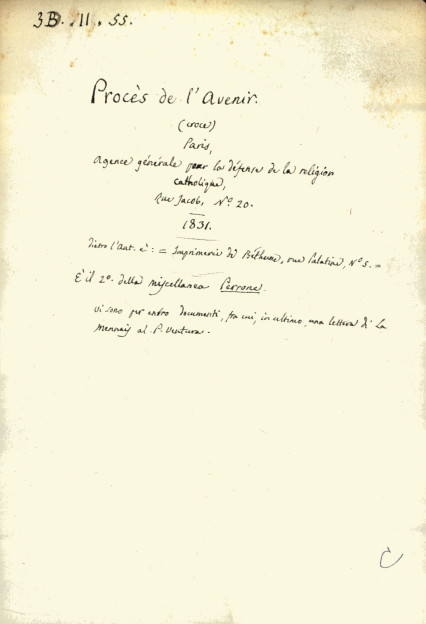 3B. 11. 55.
Procès de l'Avenir.
(croce)
Paris,
Agence générale pour la défense de la religion
catholique,
Rue Jacob, Nº 20.
1831.
dietro l'Ant. è: = Imprimerie de Béthune, rue Palatine, Nº 5. =
È il 2º. della miscellanea Perrone.
vi sono per entro documenti, fra cui, in ultimo, una lettera di La
Mennais al P. Ventura.